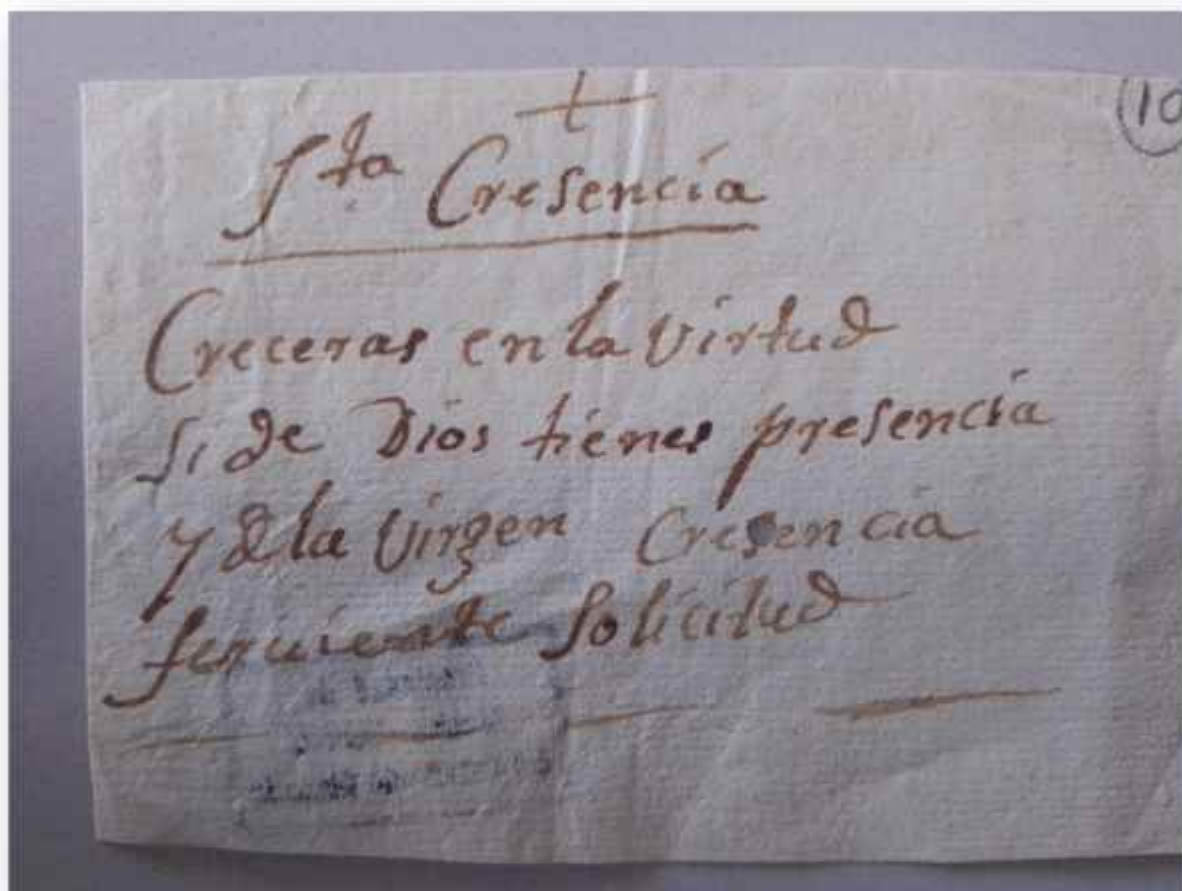 10
Sta Cresencia
Creceras en la Virtud
si de Dios tienes presencia
y de la Virgen Cresencia
ferviente solicitud